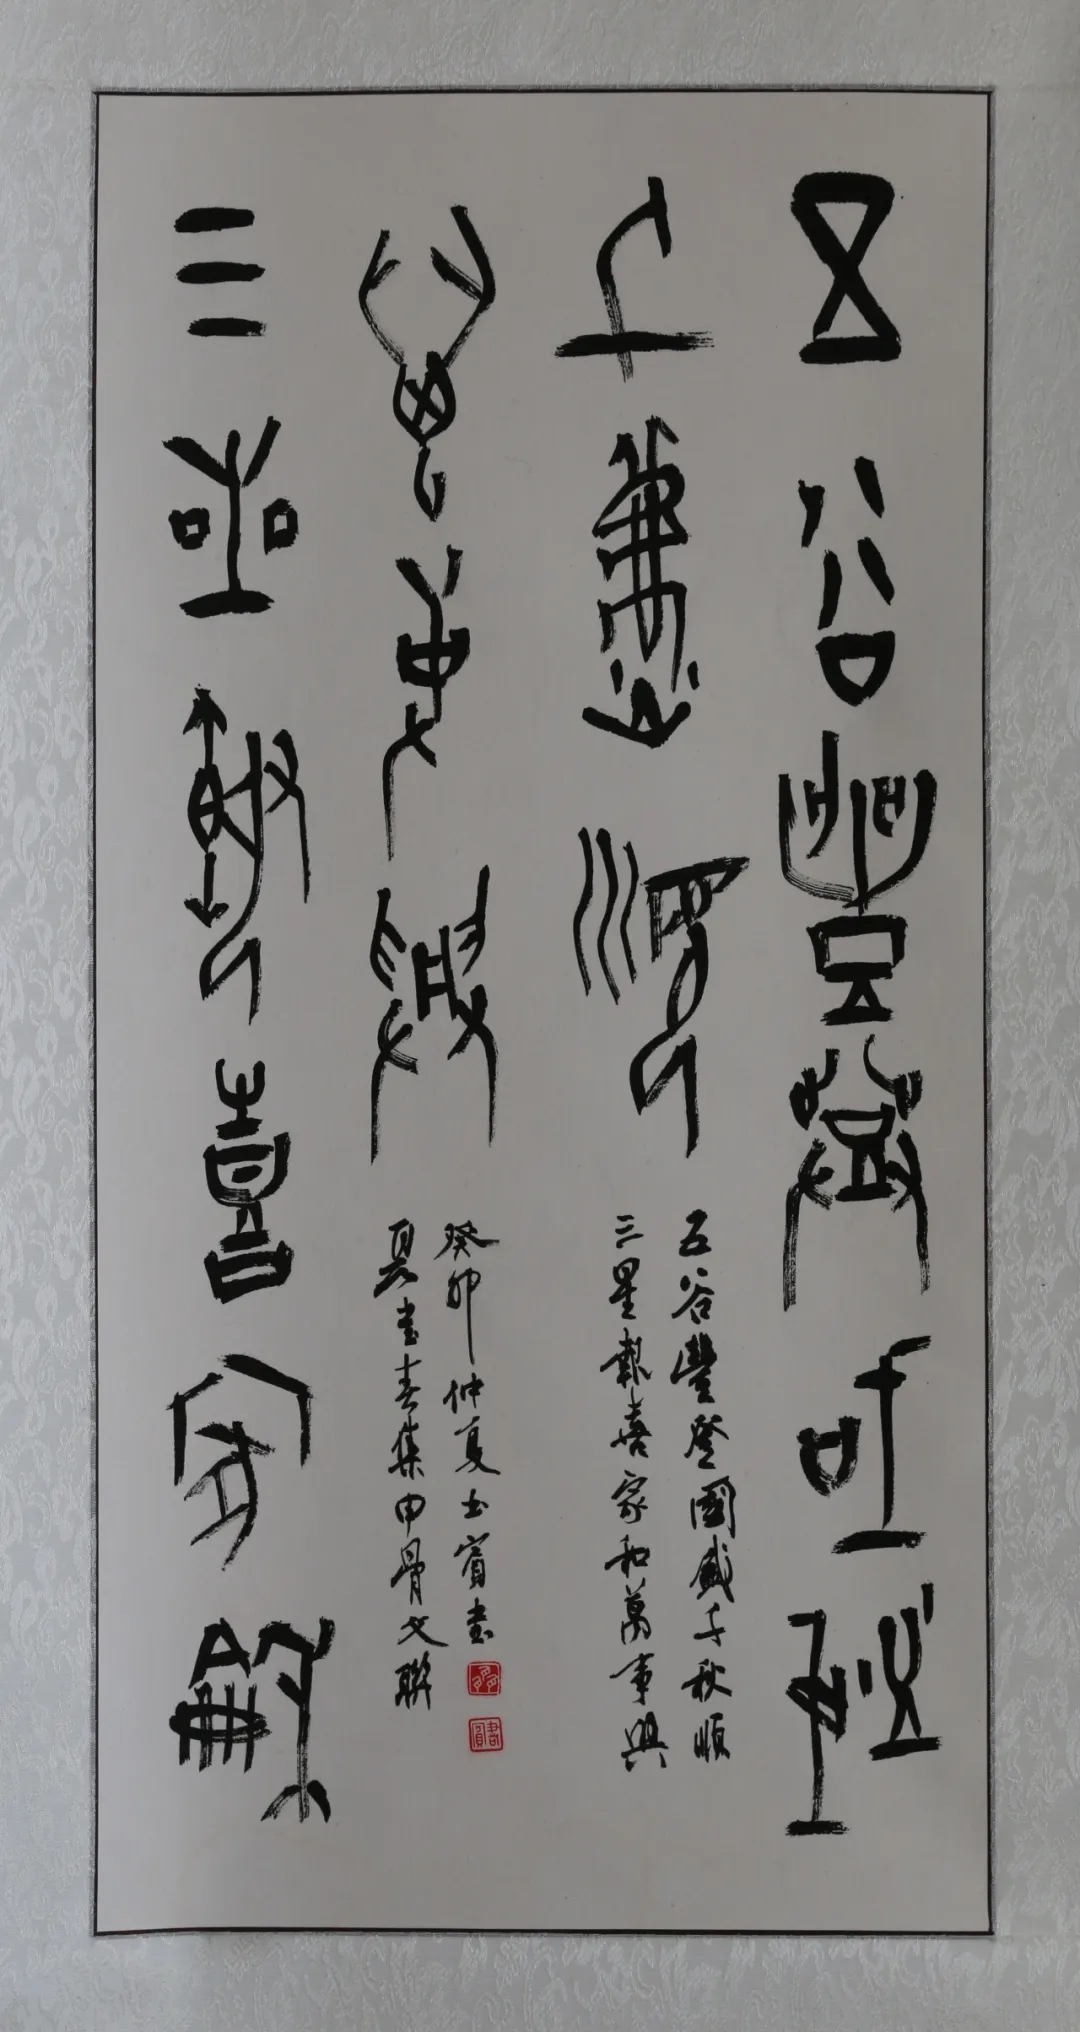 五谷豐登國盛
千秋順
三星報喜家和
萬事興
五谷豐登國盛千秋順
三星報喜家和萬事興
集甲骨文聯
癸卯仲夏賓書